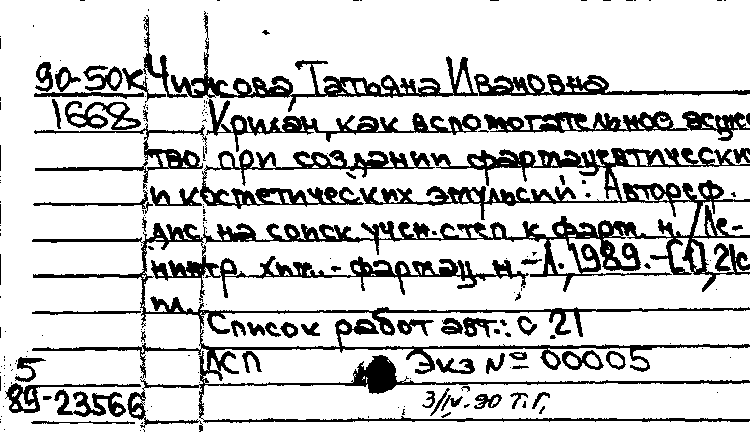 90-50к Чижова, Татьяна Ивановна
1668 Крилан как вспомогательное вещес
тво при создании фармацевтических
и косметических эмульсий: Автореф.
дис. на соиск. учен. степ. к. фарм. н. / Ле-
нингр. хим.-фармац. н. - Л., 1989. - [1], 21 с
ил.
Список работ авт.: с. 21
ДСП Экз № 00005
5
89-23566 3/IV-90 Т.Г.